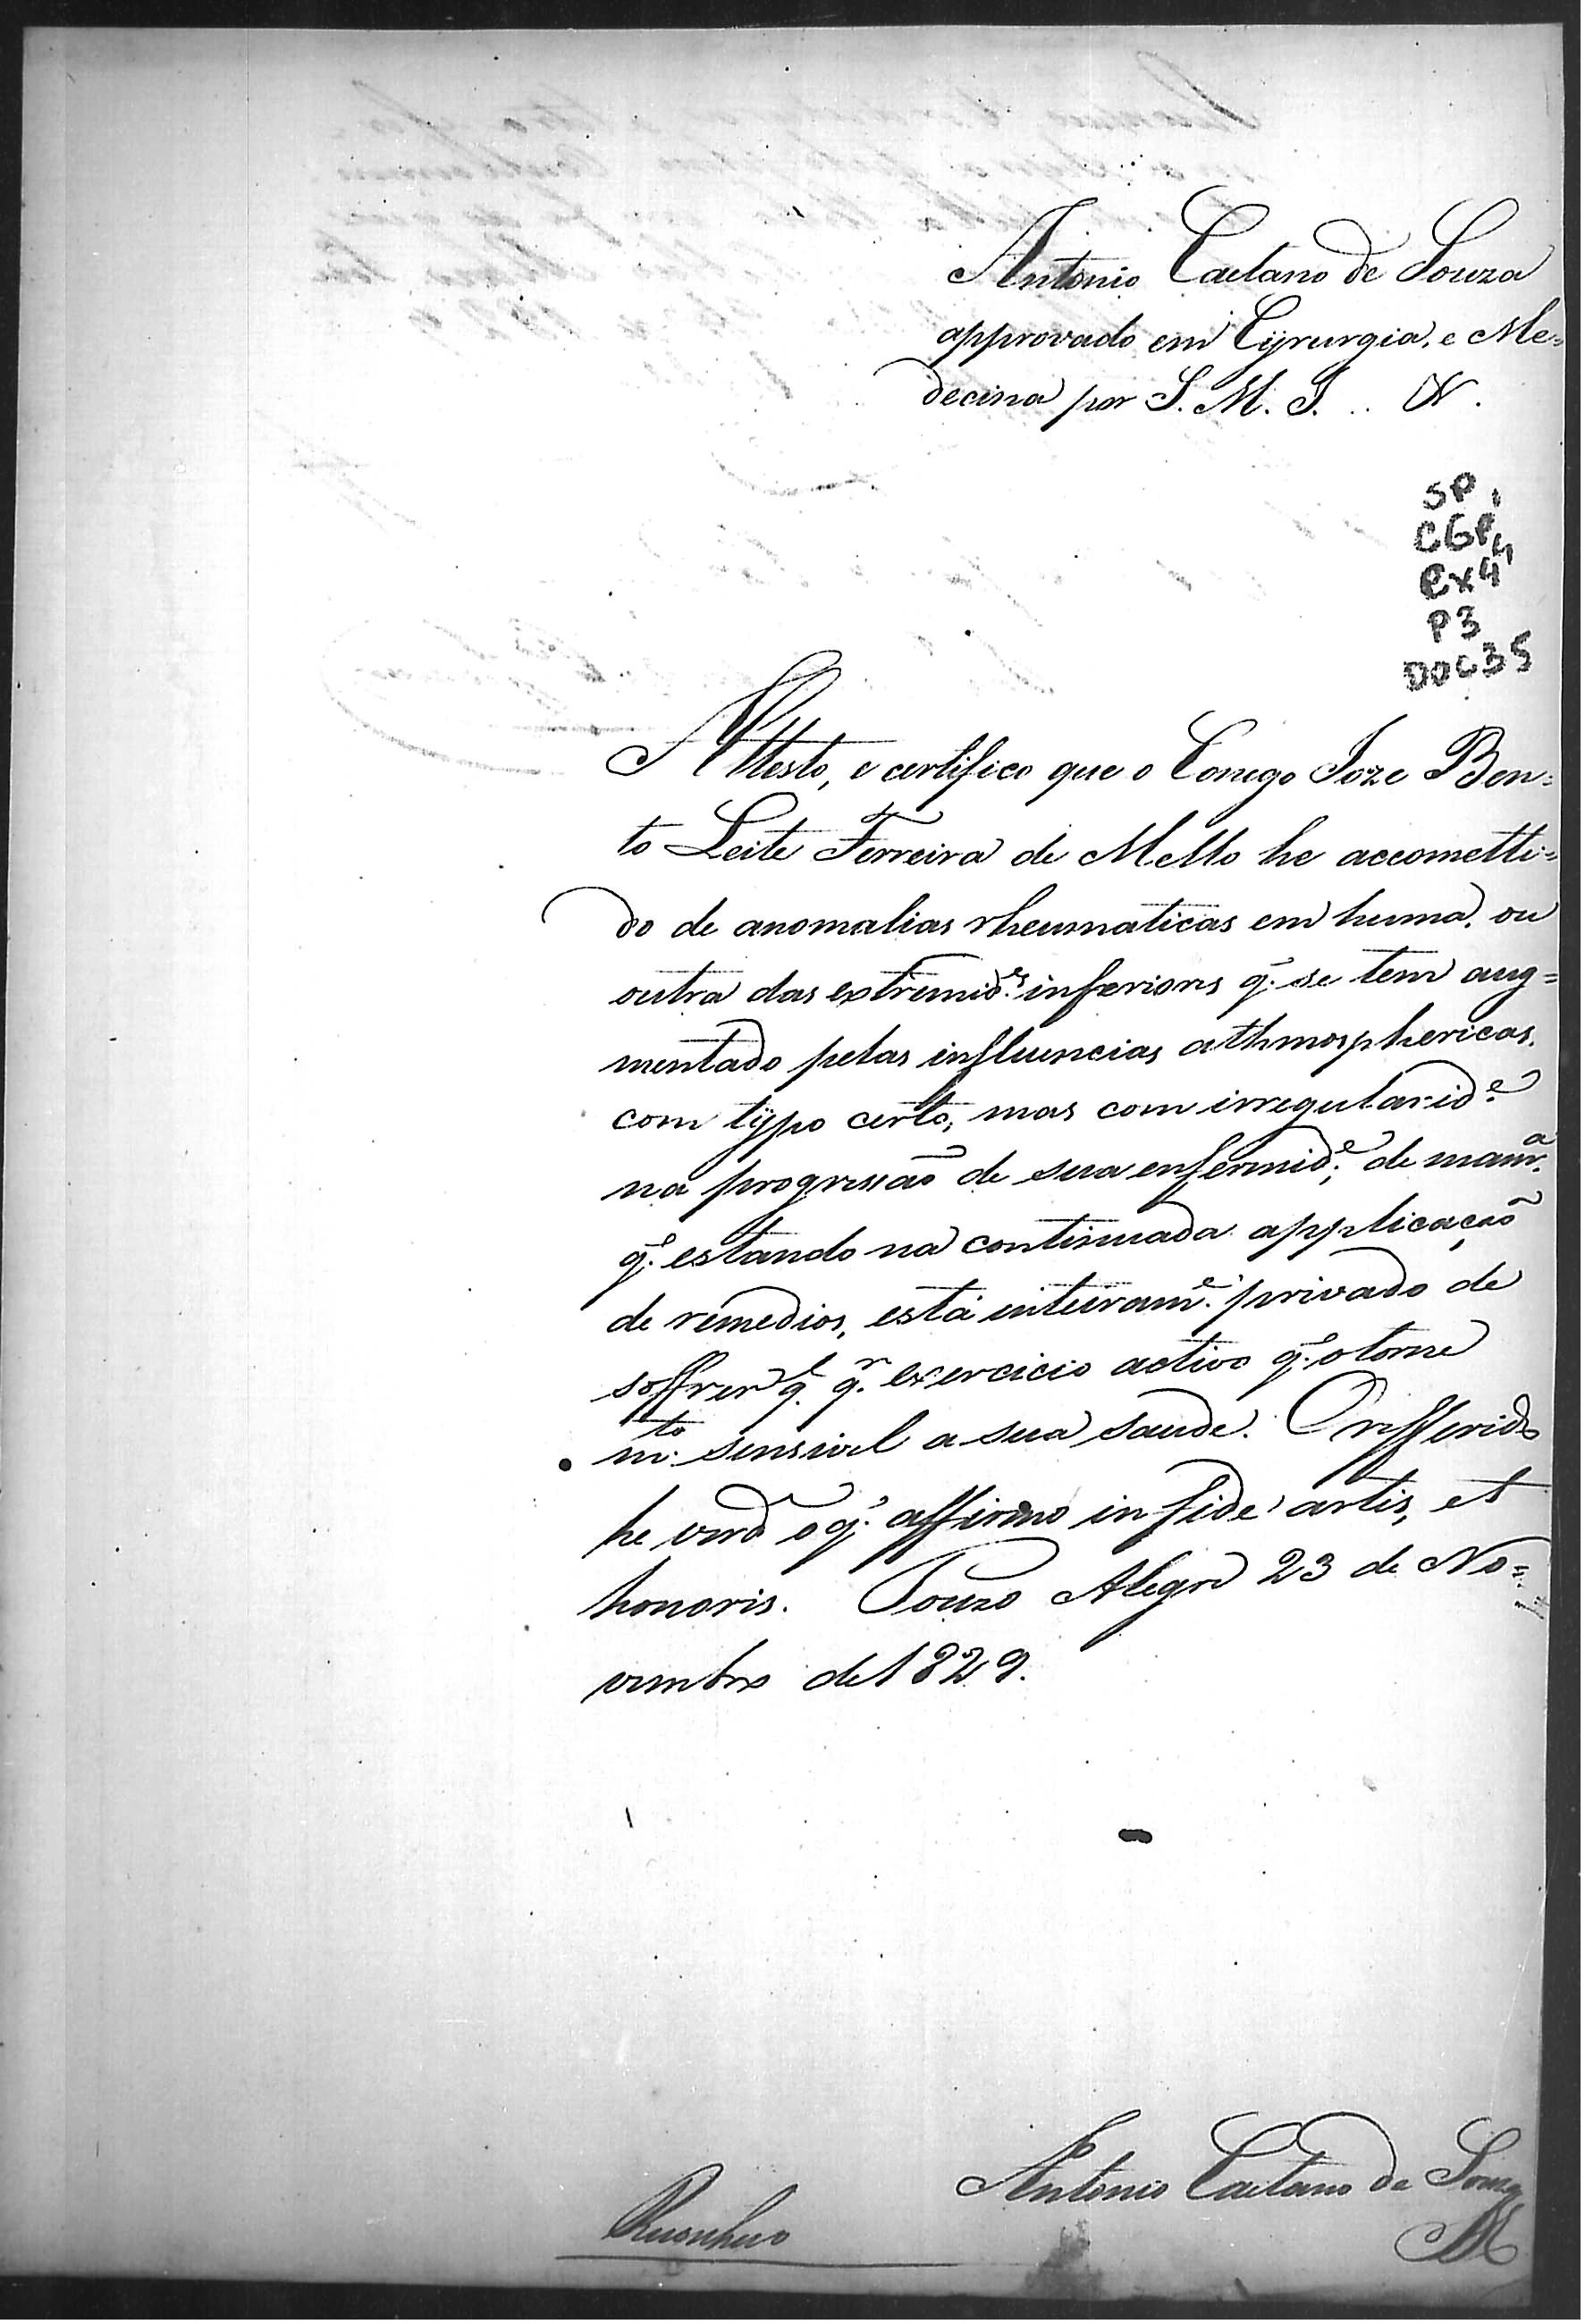 Antonio Caetano de Souza
approvado em Cyrurgia, e Me=
decina por S. M. I. . . &.
SP,
CGP,4
Cx4
P3
DOC35
Attesto, e certifico que o Conego Joze Ben=
to Leite Ferreira de Mello he accometti=
do de anomalias rheumaticas em huma, ou
outra das extremid.es inferiores q. se tem aug=
mentado pelas influencias athmosphericas,
com typo certo, mas com irregularid.e
na progressaõ de sua enfermid.e, de man.ra
q.e estando na continuada applicaçaõ
de remedios, está inteiram.e privado de
soffrer q.l q.r exercicio activo q.e o torne
m.to sensivel a sua saude. O refferido
he verd.e o q.e affirmo in fide artis, et
honoris. Pouzo Alegre 23 de No=
vembro de 1829.
Antonio Caetano de Souza
Reconheço